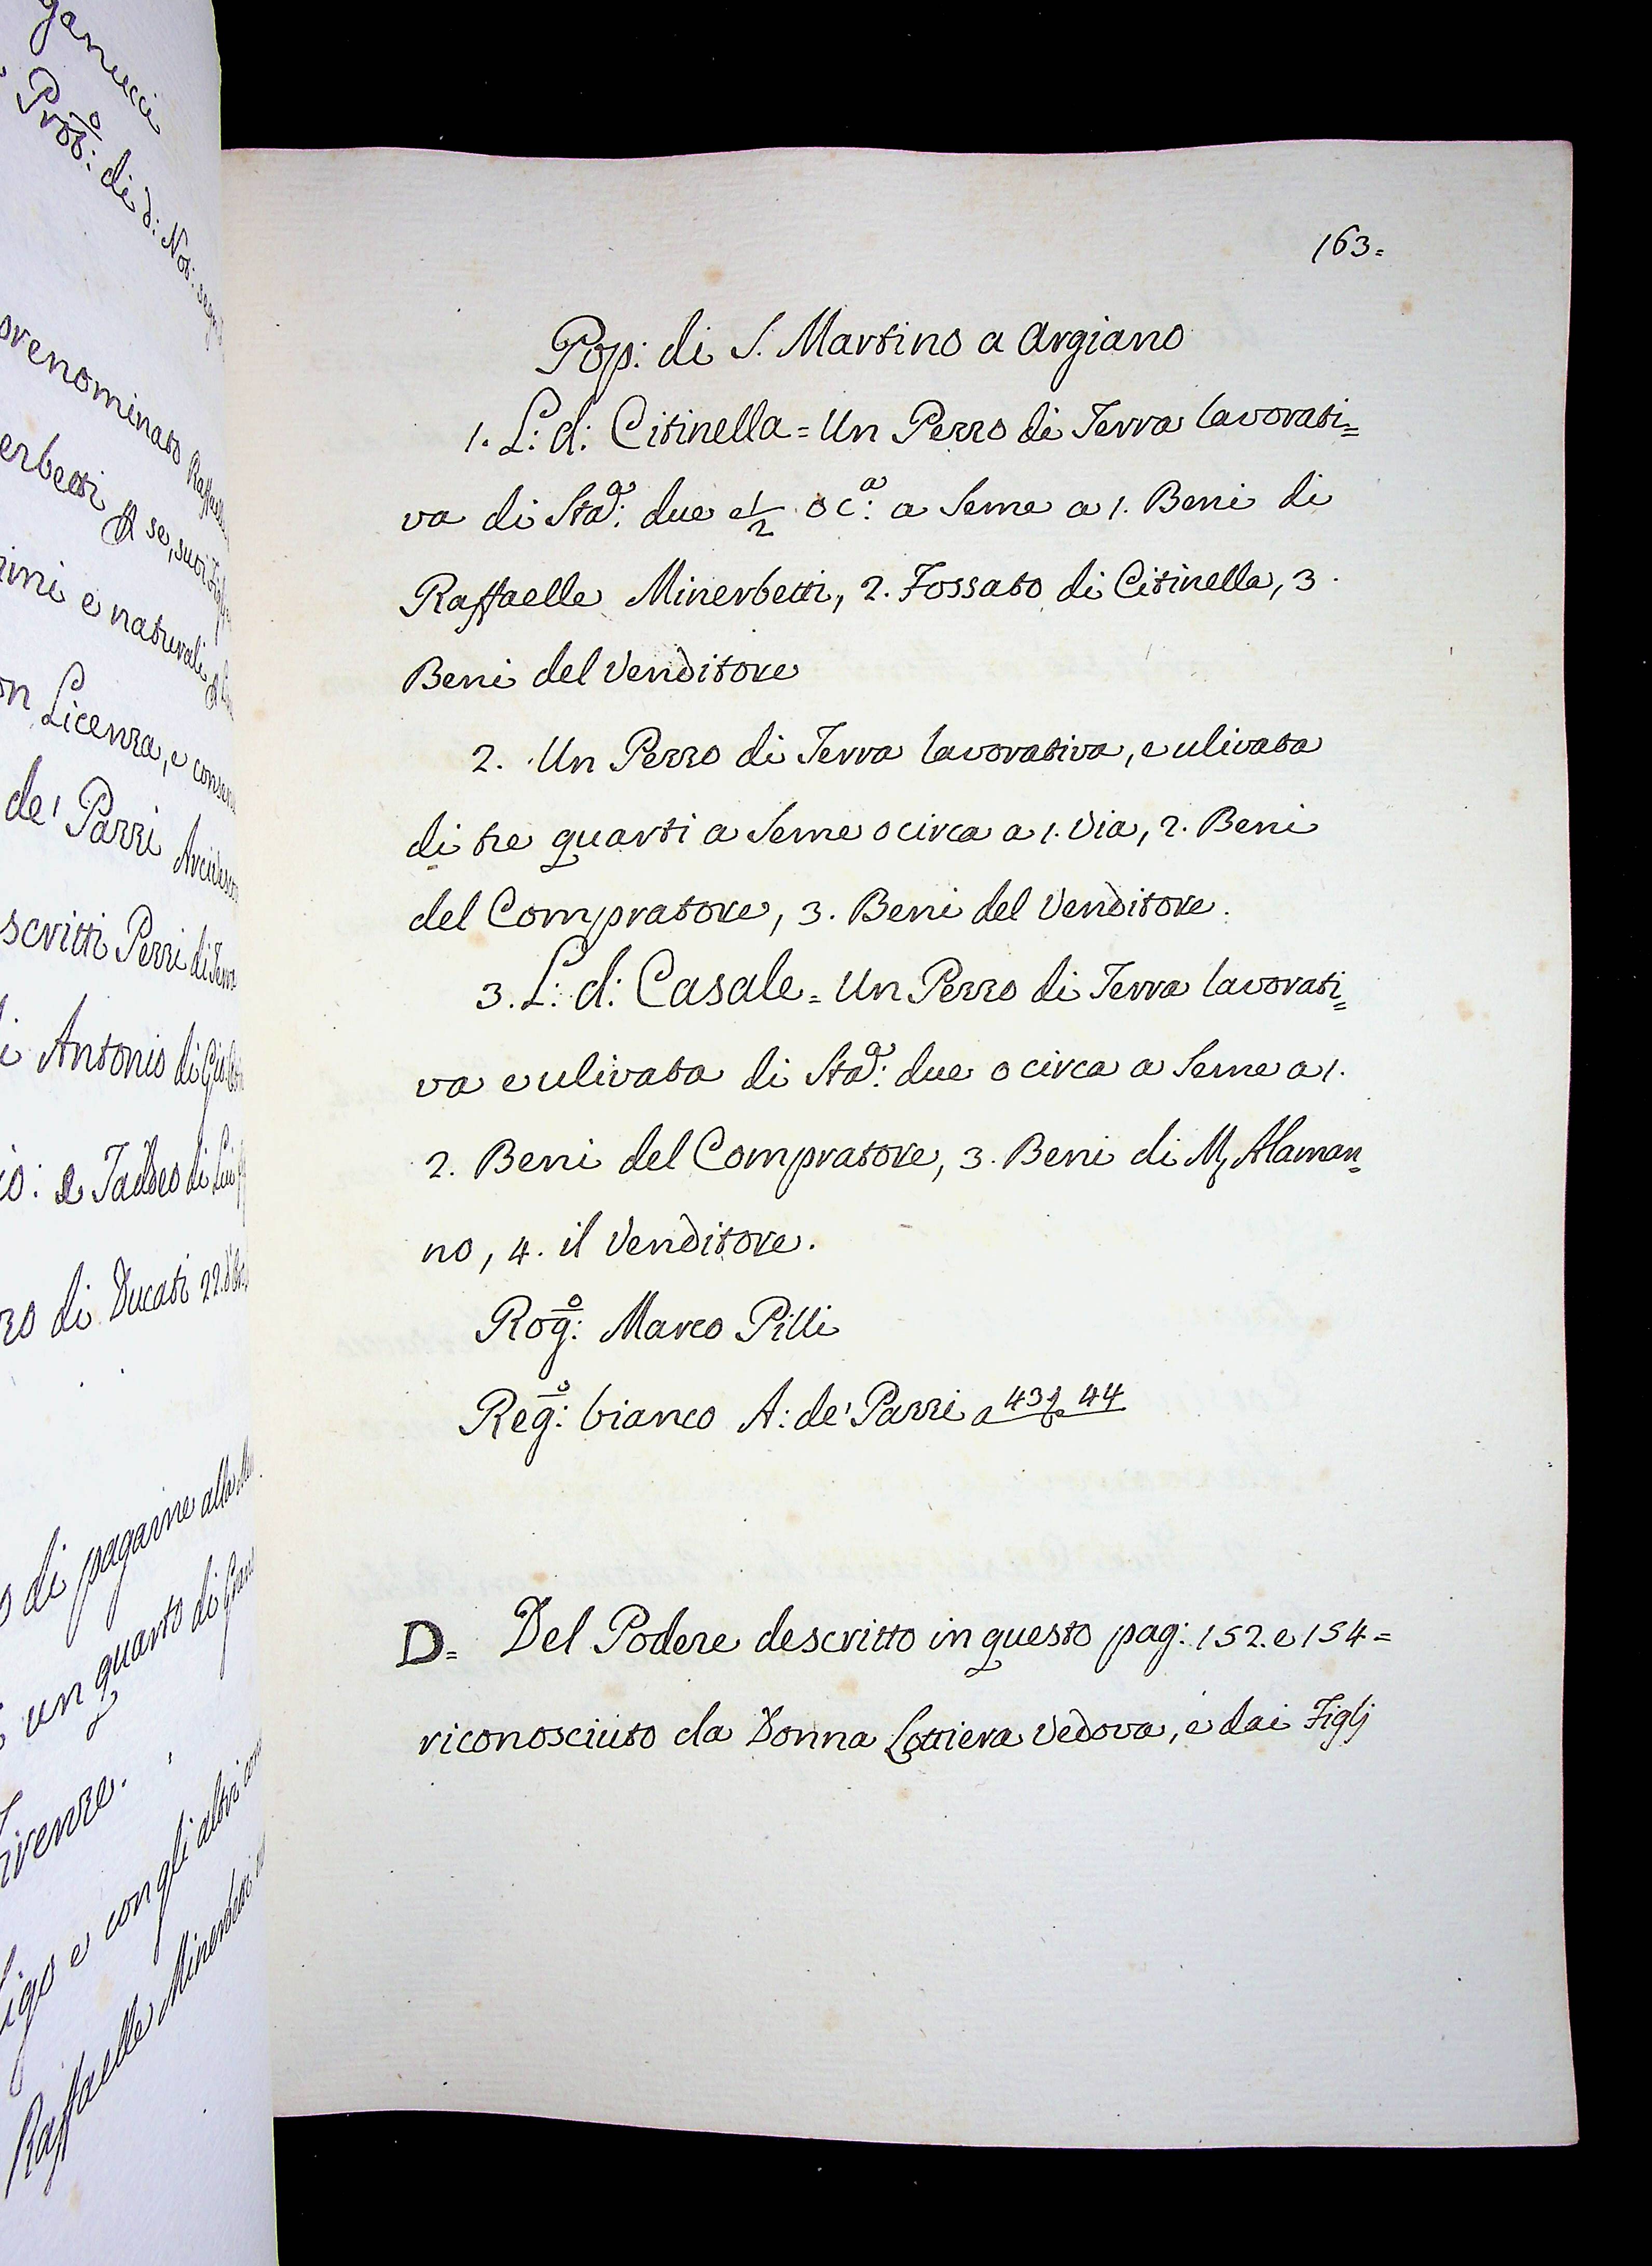 ganucci
Prop:º di d: Not: segn
163=
Pop: di S. Martino a Argiano
1. L: d: Citinella = Un Pezzo di Terra lavorati=
va di Staª: due e 1/2 o cª: a Seme a 1. Beni di
Raffaelle Minerbetti, 2. Fossato di Citinella, 3.
Beni del Venditore
2. Un Pezzo di Terra lavorativa, e ulivata
di tre quarti a Seme o circa a 1. Via, 2. Beni
del Compratore, 3. Beni del Venditore.
3. L: d: Casale = Un Pezzo di Terra lavorati=
va e ulivata di Staª: due o circa a Seme a 1.
2. Beni del Compratore, 3. Beni di M, Alaman=
no, 4. il Venditore.
Rogº: Marco Pilli
Regº: bianco A: de' Pazzi a 43 44
D= Del Podere descritto in questo pag: 152. e 154=
riconosciuto da Donna Lottiera Vedova, e dai Figlj
ovenominato
erbetti se, suoi
imi e naturali
on Licenza, e
de' Pazzi
scritti Pezzi di Terra
i Antonio di
io: e Taddeo di
zo di Ducati 22
o di pagarne alla
un quarto di
ivenze.
igo e con gli altri
Raffaelle Minerbetti